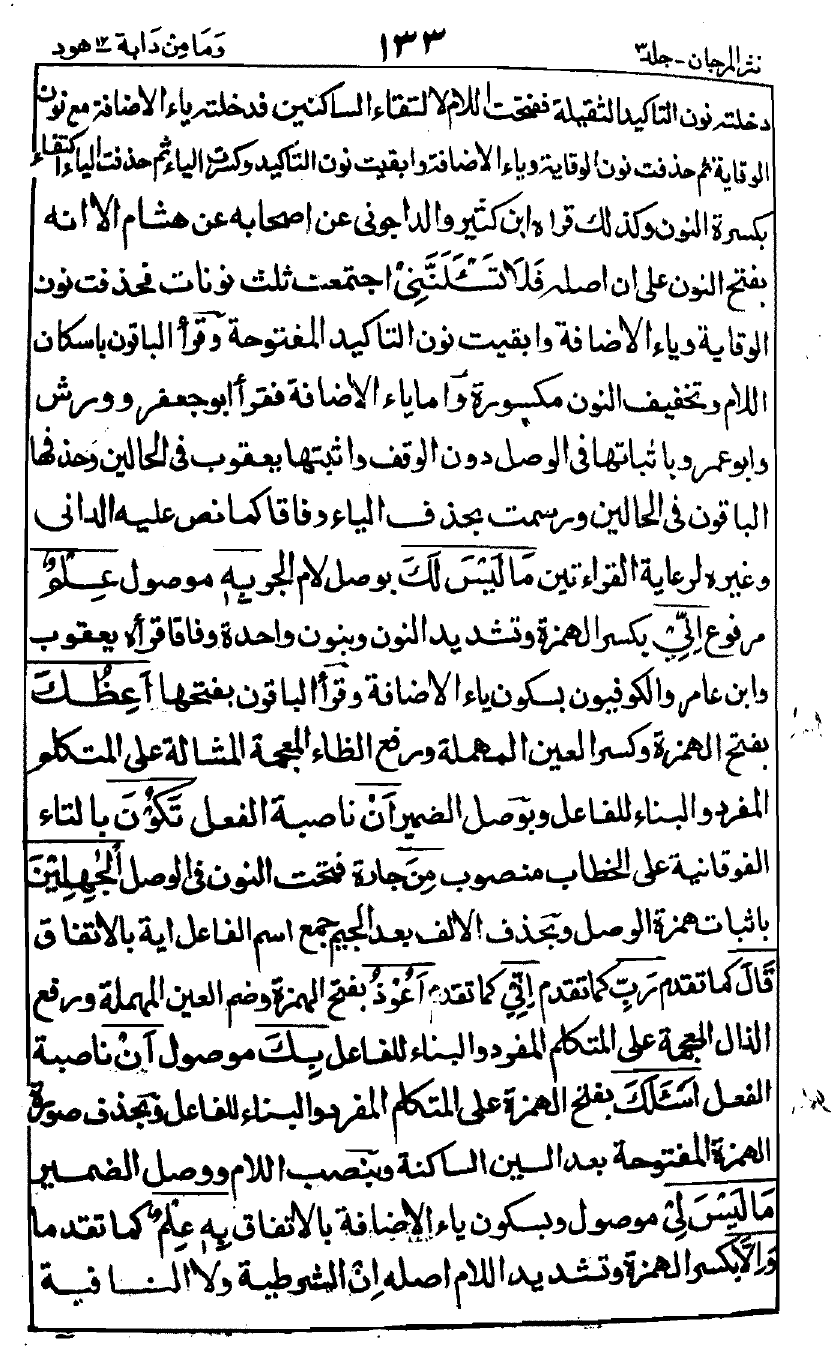 نثر المرجان - جلد ٣ ١٣٣ وَمَا مِن دَابة ١٢ هود
دخلته نون التاكيد الثقيلة ففتحت اللام لالتقاء الساكنين فدخلته ياء الاضافة مع نون
الوقاية ثم حذفت نون الوقاية وياء الاضافة وابقيت نون التاكيد وكسرت الياء ثم حذفت الياء اكتفاء
بكسرة النون وكذلك قراه ابن كثير والداجونى عن اصحابه عن هشام الا انه
بفتح النون على ان اصله فَلَا تَسْـَٔلَنَّنِىْ اجتمعت ثلث نونات فحذفت نون
الوقاية وياء الاضافة وابقيت نون التاكيد المفتوحة وقرأ الباقون باسكان
اللام وتخفيف النون مكسورة واما ياء الاضافة فقرأ ابو جعفر وورش
وابو عمرو باثباتها فى الوصل دون الوقف واثبتها يعقوب فى الحالين وحذفها
الباقون فى الحالين ورسمت بحذف الياء وفاقا كما نص عليه الدانى
وغيره لرعاية القراءتين مَا لَيْسَ لَكَ بوصل لام الجر بِهٖ موصول عِلْمٌ
مرفوع اِنِّىْ بكسر الهمزة وتشديد النون وبنون واحدة وفاقا قرأه يعقوب
وابن عامر والكوفيون بسكون ياء الاضافة وقرأ الباقون بفتحها اَعِظُكَ
بفتح الهمزة وكسر العين المهملة ورفع الظاء المعجمة المشالة على المتكلم
المفرد والبناء للفاعل وبوصل الضمير اَنْ ناصبة الفعل تَكُوْنَ بالتاء
الفوقانية على الخطاب منصوب مِنَ جارة فتحت النون فى الوصل الْجٰهِلِيْنَ
باثبات همزة الوصل وبحذف الالف بعد الجيم جمع اسم الفاعل اية بالاتفاق
قَالَ كما تقدم رَبِّ كما تقدم اِنِّىْ كما تقدم اَعُوْذُ بفتح الهمزة وضم العين المهملة ورفع
الذال المعجمة على المتكلم المفرد والبناء للفاعل بِكَ موصول اَنْ ناصبة
الفعل اَسْـَٔلَكَ بفتح الهمزة على المتكلم المفرد والبناء للفاعل وبحذف صورة
الهمزة المفتوحة بعد السين الساكنة وبنصب اللام ووصل الضمير
مَا لَيْسَ لِىْ موصول وبسكون ياء الاضافة بالاتفاق بِهٖ عِلْمٌ كما تقدما
وَاِلَّا بكسر الهمزة وتشديد اللام اصله اِنْ الشرطية ولا النافية